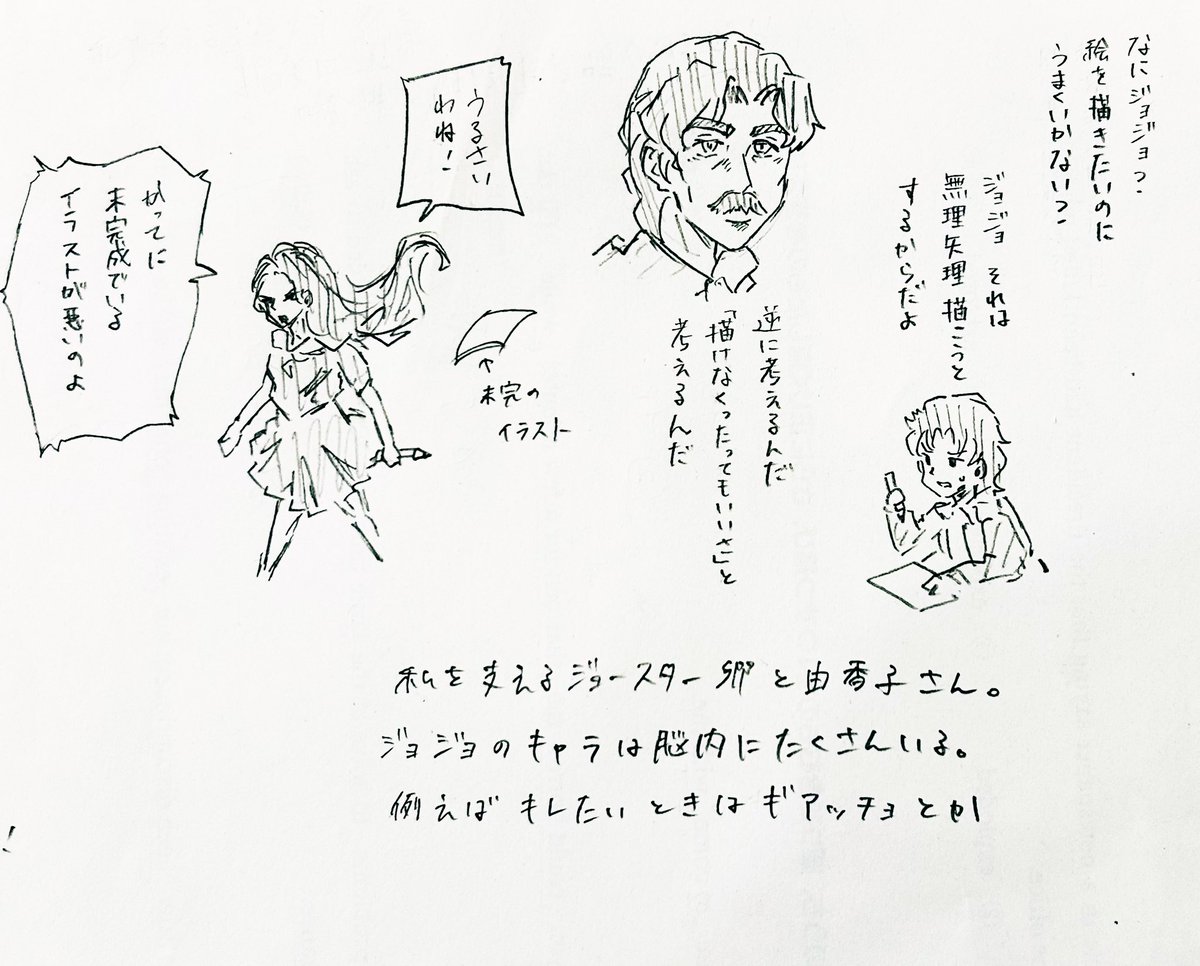 なにジョジョ?
絵を描きたいのに
うまくいかない?
ジョジョ それは
無理矢理描こうと
するからだよ
逆に考えるんだ
「描けなくったってもいいさ」と
考えるんだ
うるさい
わね!
↑
未完の
イラスト
かってに
未完成でいる
イラストが悪いのよ
私を支えるジョースター卿と由香子さん。
ジョジョのキャラは脳内にたくさんいる。
例えばキレたいときはギアッチョとか
!